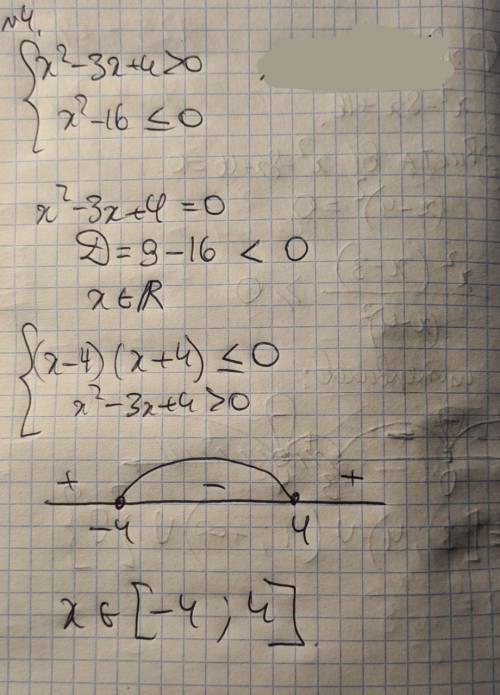 №4.
x²-3x+4>0
x²-16 ≤ 0
x²-3x+4 = 0
D = 9-16 < 0
x ∈ R
(x-4)(x+4) ≤ 0
x²-3x+4>0
+ - +
-4 4
x ∈ [-4; 4].